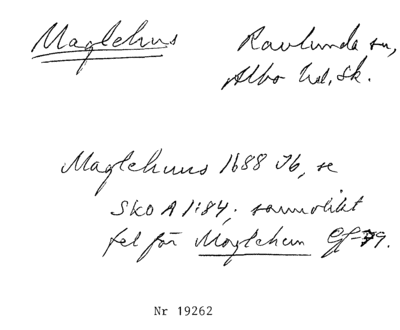 Maglehus Ravlunda sn,
Albo hd, Sk.
Maglehuus 1688 Jb, se
SkO A 1:84; sannolikt
fel för Maglehem
Nr 19262